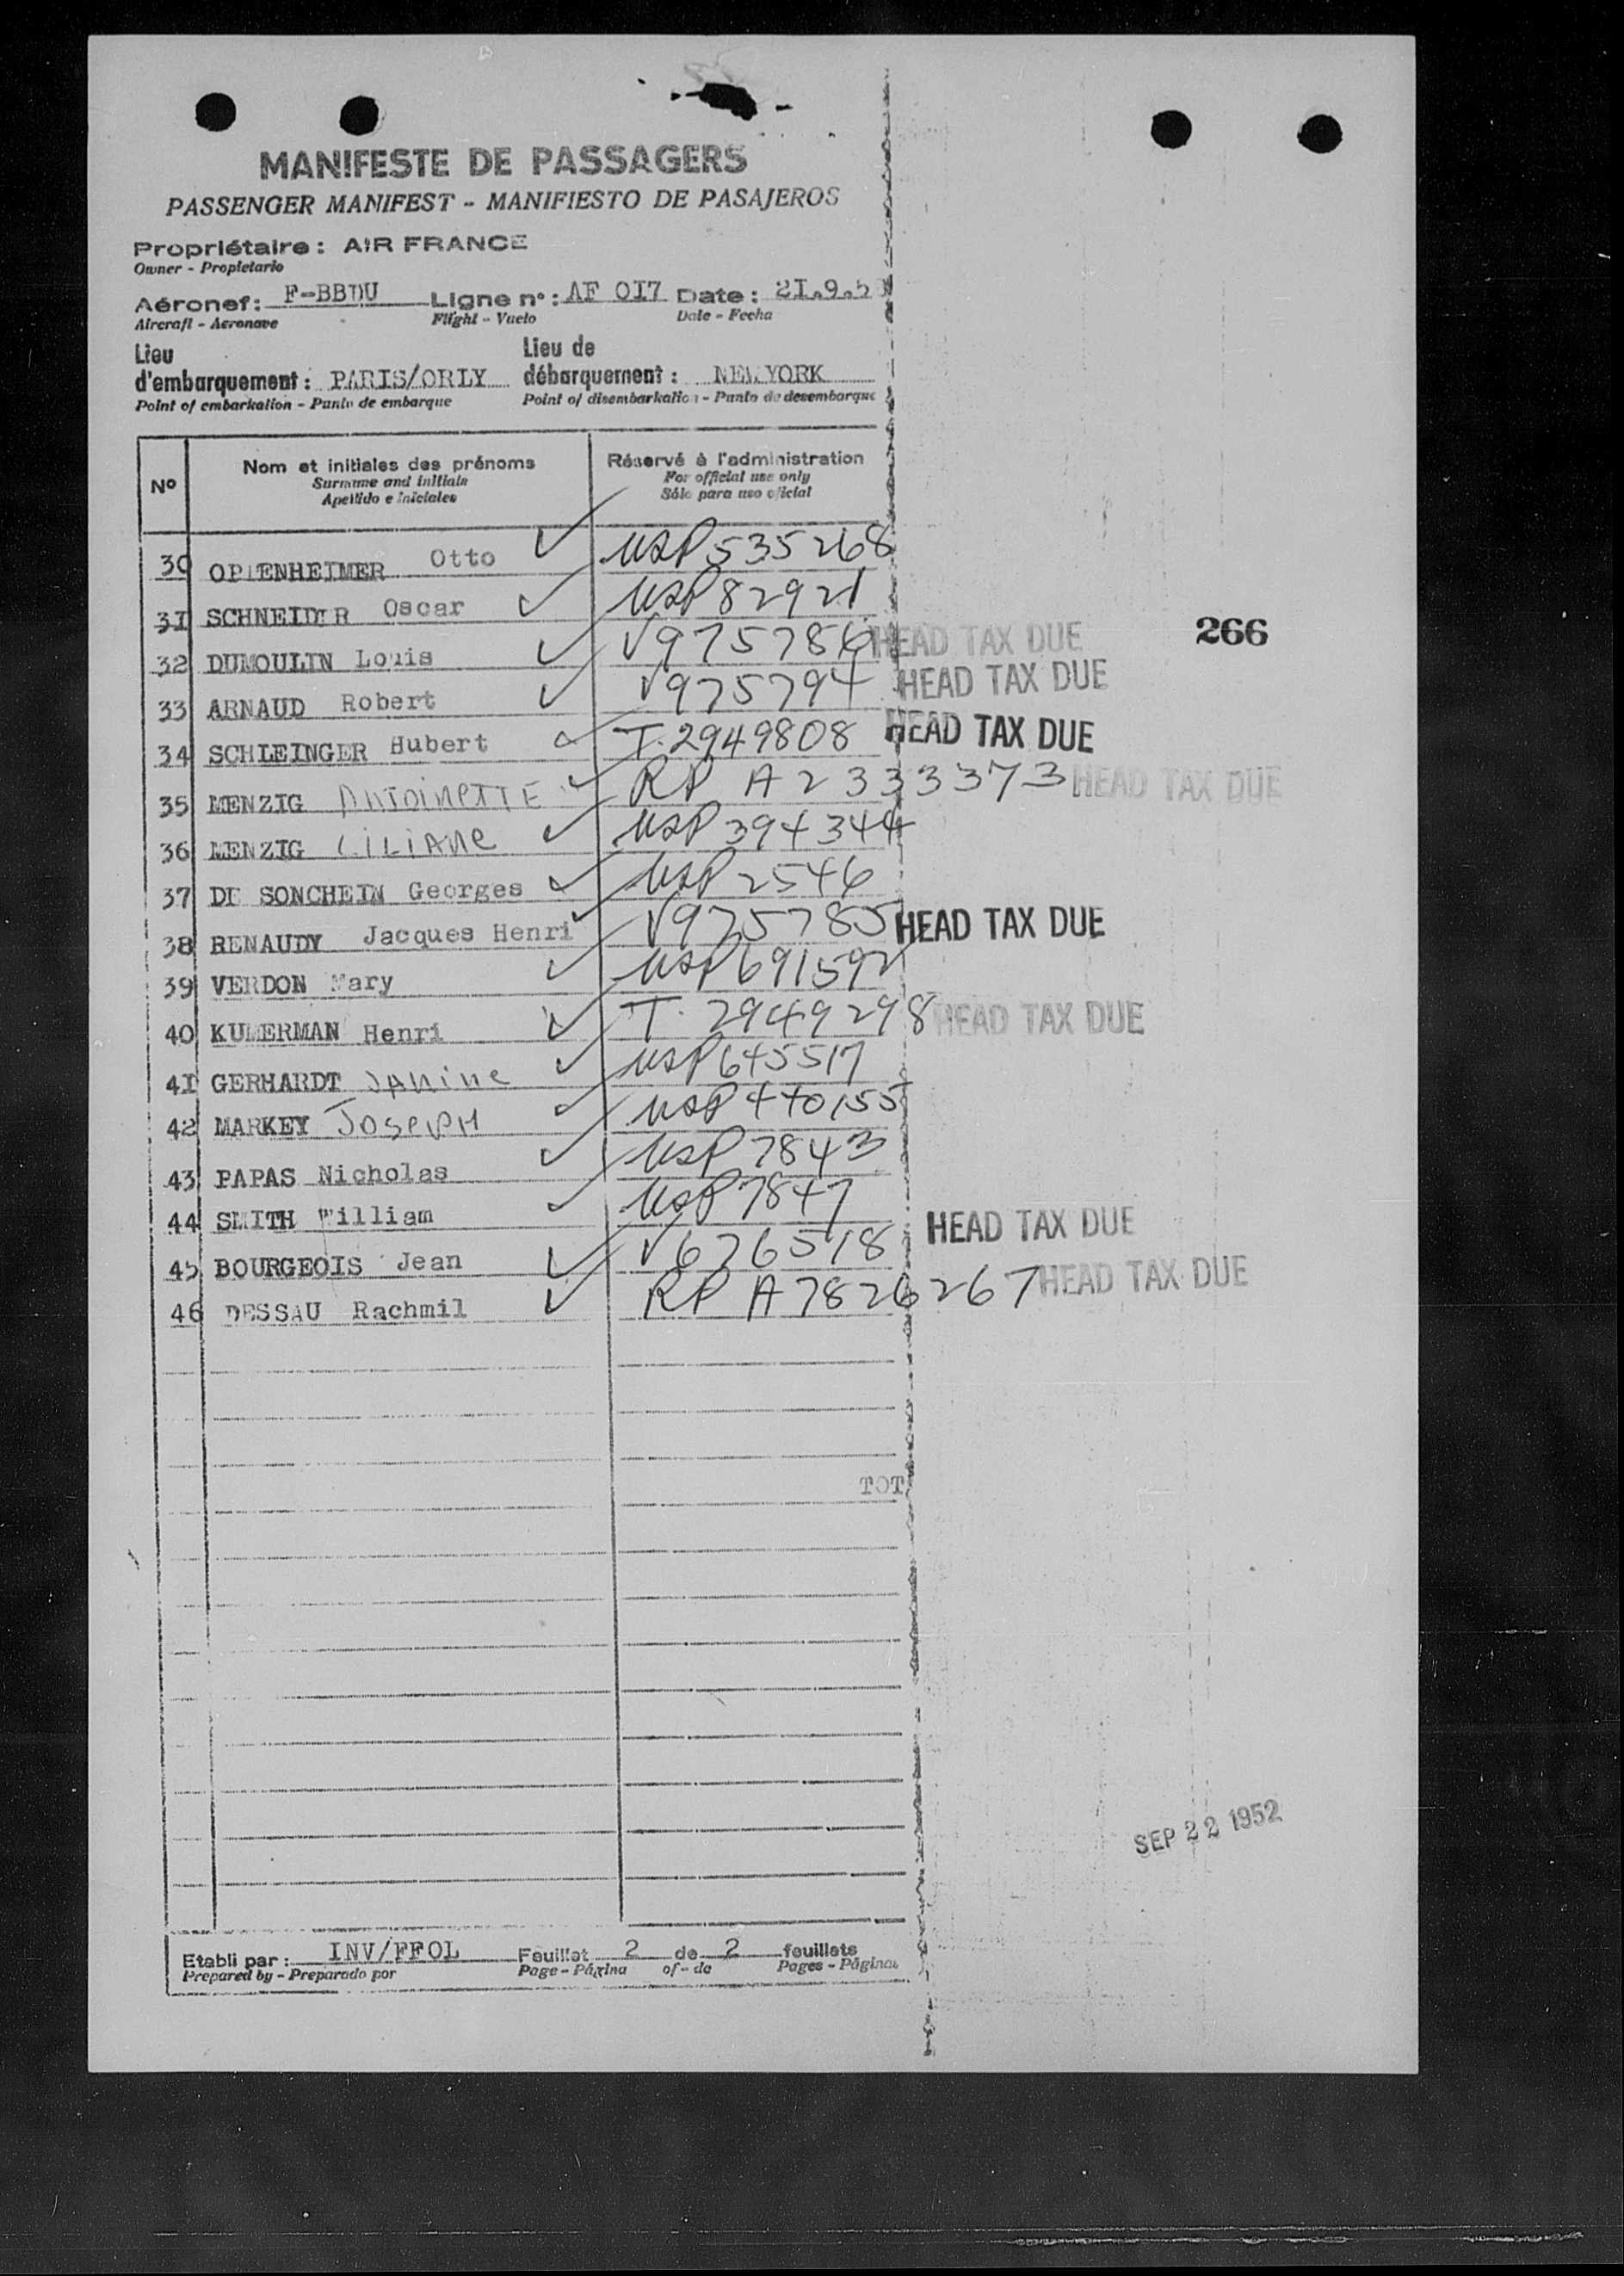 MANIFESTE DE PASSAGERS
PASSENGER MANIFEST - MANIFIESTO DE PASAJEROS
Propriétaire : AIR FRANCE
Owner - Propietario
Aéronef : F-BBDU Ligne n° : AF 0I7 Date : 2I.9.5
Aircraft - Aeronave Flight - Vuelo Date - Fecha
Lieu d'embarquement : PARIS/ORLY Lieu de débarquement : NEW YORK
Point of embarkation - Punto de embarque Point of disembarkation - Punto de desembarque
N° Nom et initiales des prénoms Réservé à l'administration
Surname and initials For official use only
Apellido e iniciales Sólo para uso oficial
30 OPPENHEIMER Otto USP 535268
3I SCHNEIDER Oscar USP 82921
266
32 DUMOULIN Louis V975786 HEAD TAX DUE
33 ARNAUD Robert V975794 HEAD TAX DUE
34 SCHLEINGER Hubert T. 2949808 HEAD TAX DUE
35 MENZIG ANTOINETTE RP A2333373 HEAD TAX DUE
36 MENZIG LILIANE USP 394344
37 DE SONCHEIN Georges USP 2546
38 RENAUDY Jacques Henri V975785 HEAD TAX DUE
39 VERDON Mary USP 691592
40 KUMERMAN Henri T. 2949298 HEAD TAX DUE
4I GERHARDT JANINE USP 645517
42 MARKEY JOSEPH USP 440155
43 PAPAS Nicholas USP 7843
44 SMITH William USP 7847
45 BOURGEOIS Jean V676518 HEAD TAX DUE
46 DESSAU Rachmil RP A7826267 HEAD TAX DUE
TOT
SEP 22 1952
Etabli par : INV/FFOL Feuillet 2 de 2 feuillets
Prepared by - Preparado por Page - Página of - de Pages - Páginas